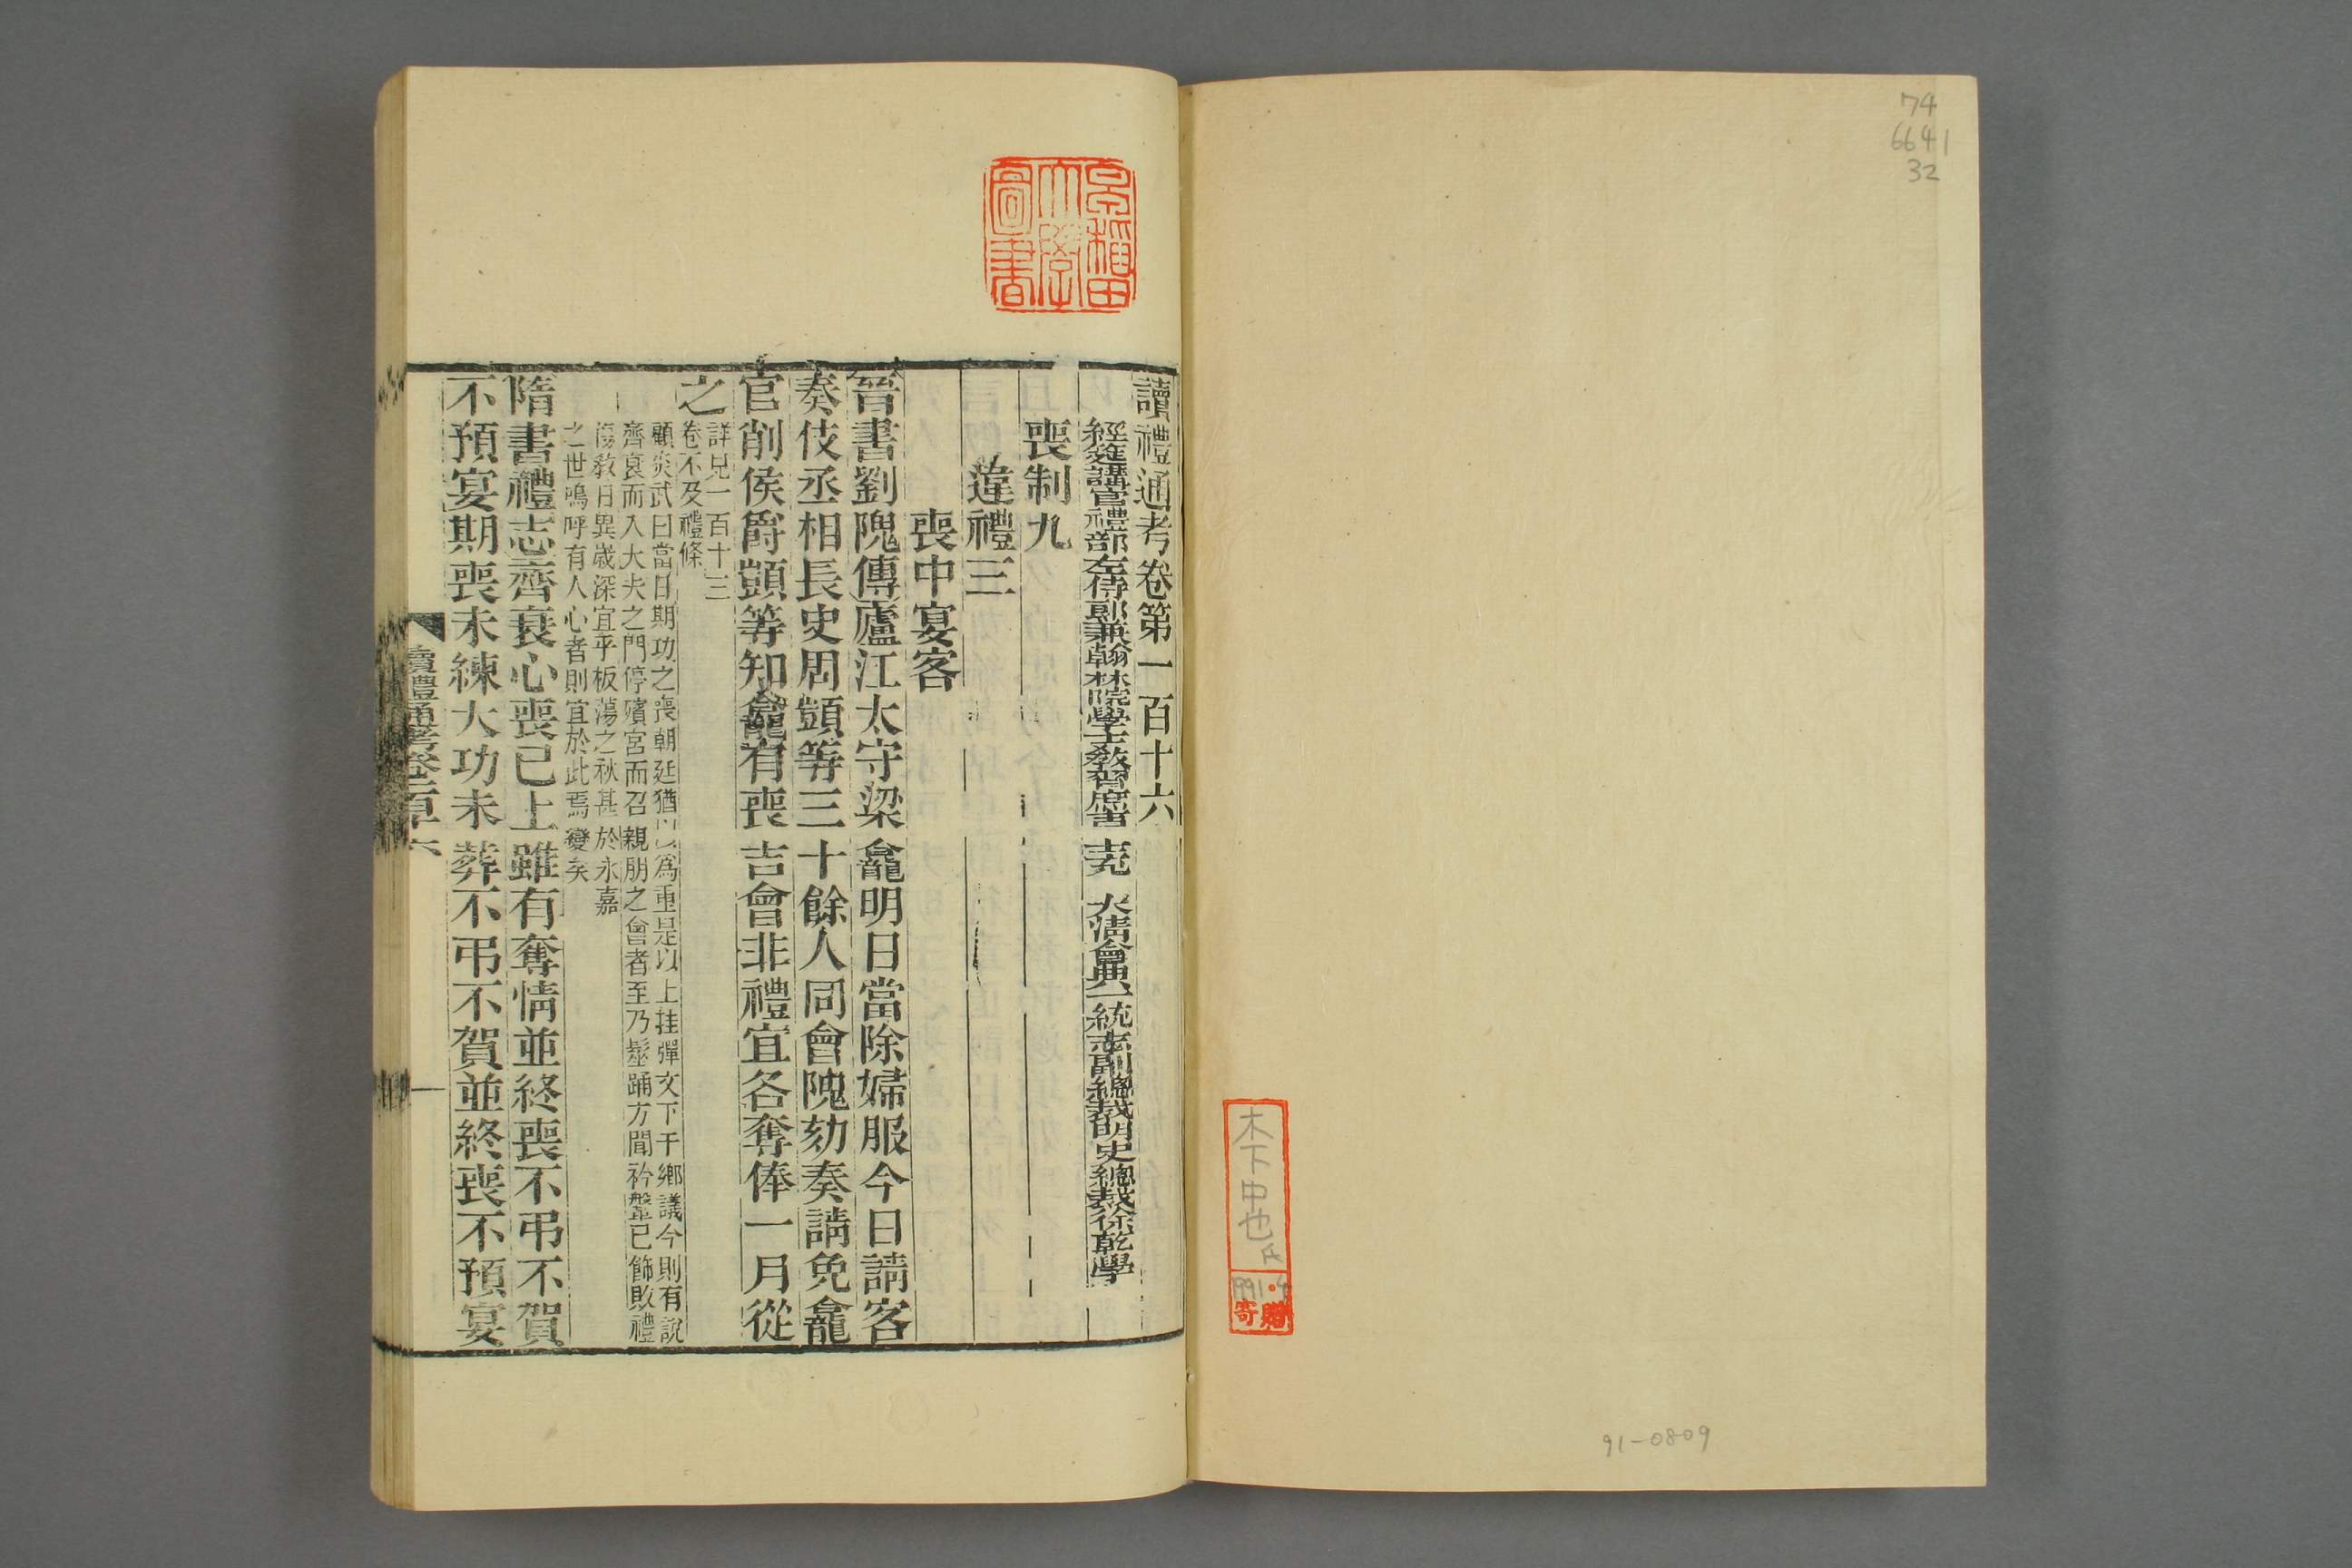 74
6641
32
木下中也氏
1991.4
寄贈
91-0809
早稲田大學圖書
讀禮通考卷第一百十六
經筵講官禮部左侍郎兼翰林院學士教習庶吉士充 大清會典一統志副總裁明史總裁徐乾學
喪制九
違禮三
喪中宴客
晉書劉隗傳廬江太守梁龕明日當除婦服今日請客
奏伎丞相長史周顗等三十餘人同會隗劾奏請免龕
官削侯爵顗等知龕有喪吉會非禮宜各奪俸一月從
之詳見一百十三
卷不及禮條
顧炎武曰當日期功之喪朝廷猶以為重是以上挂彈文下干鄉議今則有說
齊衰而入大夫之門停殯宮而召親朋之會者至乃髽踊方聞衿鞶已飾敗禮
傷敎日異歲深宜乎板蕩之秋甚於永嘉
之世嗚呼有人心者則宜於此焉變矣
隋書禮志齊衰心喪已上雖有奪情並終喪不弔不賀
不預宴期喪未練大功未葬不弔不賀並終喪不預宴
讀禮通考卷一百十六
一